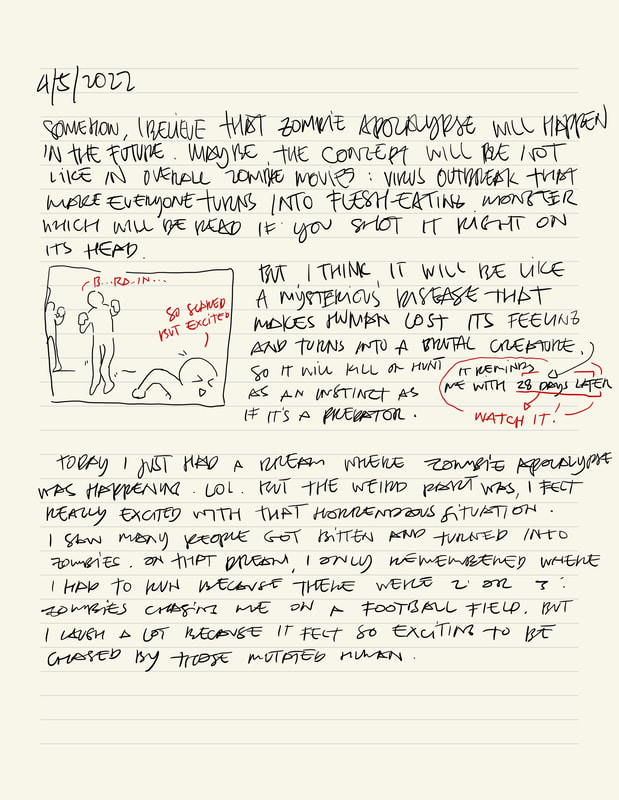 4/5/2022
SOMEHOW, I BELIEVE THAT ZOMBIE APOCALYPSE WILL HAPPEN
IN THE FUTURE. MAYBE, THE CONCEPT WILL BE NOT
LIKE IN OVERALL ZOMBIE MOVIES: VIRUS OUTBREAK THAT
MAKE EVERYONE TURNS INTO FLESH-EATING MONSTER
WHICH WILL BE DEAD IF YOU SHOT IT RIGHT ON
ITS HEAD.
B...RA..IN...
SO SCARED
BUT EXCITED
BUT, I THINK, IT WILL BE LIKE
A MYSTERIOUS DISEASE THAT
MAKES HUMAN LOST ITS FEELING
AND TURNS INTO A BRUTAL CREATURE.
SO IT WILL KILL OR HUNT
AS AN INSTINCT AS
IF IT'S A PREDATOR.
IT REMINDS
ME WITH 28 DAYS LATER
WATCH IT!
TODAY I JUST HAD A DREAM WHERE ZOMBIE APOCALYPSE
WAS HAPPENING. LOL. BUT THE WEIRD PART WAS, I FELT
REALLY EXCITED WITH THAT HORRENDOUS SITUATION.
I SAW MANY PEOPLE GOT BITTEN AND TURNED INTO
ZOMBIES. ON THAT DREAM, I ONLY REMEMBERED WHERE
I HAD TO RUN BECAUSE THERE WERE 2 OR 3
ZOMBIES CHASING ME ON A FOOTBALL FIELD. BUT
I LAUGH A LOT BECAUSE IT FELT SO EXCITING TO BE
CHASED BY THOSE MUTATED HUMAN.